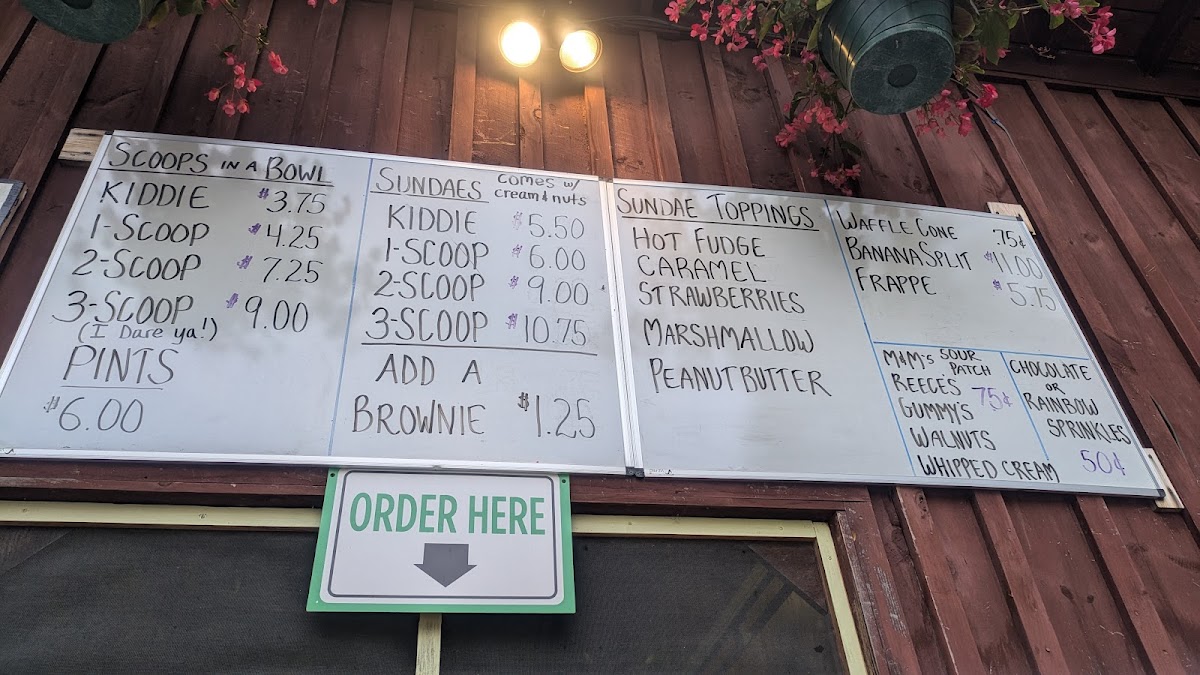 SCOOPS IN A BOWL
KIDDIE $3.75
1-SCOOP $4.25
2-SCOOP $7.25
3-SCOOP $9.00
(I Dare ya!)
PINTS
$6.00
SUNDAES comes w/ cream & nuts
KIDDIE $5.50
1-SCOOP $6.00
2-SCOOP $9.00
3-SCOOP $10.75
ADD A
BROWNIE $1.25
SUNDAE TOPPINGS
HOT FUDGE
CARAMEL
STRAWBERRIES
MARSHMALLOW
PEANUT BUTTER
WAFFLE CONE 75¢
BANANA SPLIT $11.00
FRAPPE $5.75
M&M's SOUR PATCH
REECES 75¢
GUMMY'S
WALNUTS
WHIPPED CREAM
CHOCOLATE
OR
RAINBOW
SPRINKLES
50¢
ORDER HERE